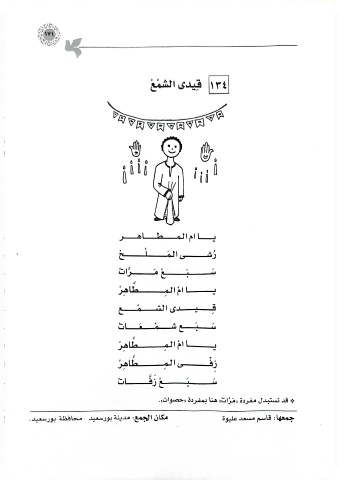 ١٧١
١٣٤ قيدى الشمْعْ
يـا ام الـمـطـاهـر
رُشـى المَـلْـح
سَـبَـع مَـرَّات
يـا امْ الـمِـطَّاهِرْ
قـيـدى الشَمْـع
سَـبَـع شمْـعَـات
يـا امْ الـمِـطَّاهِرْ
زِفّـى الـمِـطَّاهِرْ
سَـبَـعْ زَفَّـات
* قد تستبدل مفردة «مَرَّات» هنا بمفردة «حصوات».
جمعها: قاسم مسعد عليوة مكان الجمع: مدينة بورسعيد . محافظة بورسعيد.